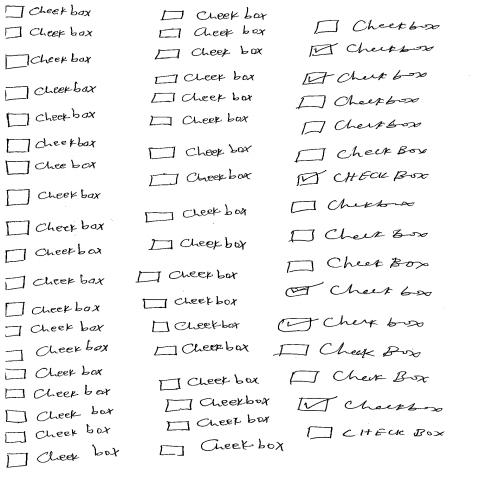 Cheek box
Cheek box
Cheek box
Cheek box
Cheek box
Cheek box
Chee box
Cheek box
Cheek box
Cheek box
Cheek box
Cheek box
Cheek box
Cheek box
Cheek box
Cheek box
Cheek box
Cheek box
Cheek box
Cheek box
Cheek box
Cheek box
Cheek box
Cheek box
Cheek box
Cheek box
Cheek box
Cheek box
Cheek box
Cheek box
Cheek box
Cheek box
Cheek box
Cheek box
Cheekbox
Cheek box
Cheek box
Checkbox
Checkbox
Check box
Checkbox
Checkbox
Check Box
CHECK Box
Checkbox
Check Box
Check Box
Check box
Check box
Check Box
Check Box
Checkbox
CHECK BOX